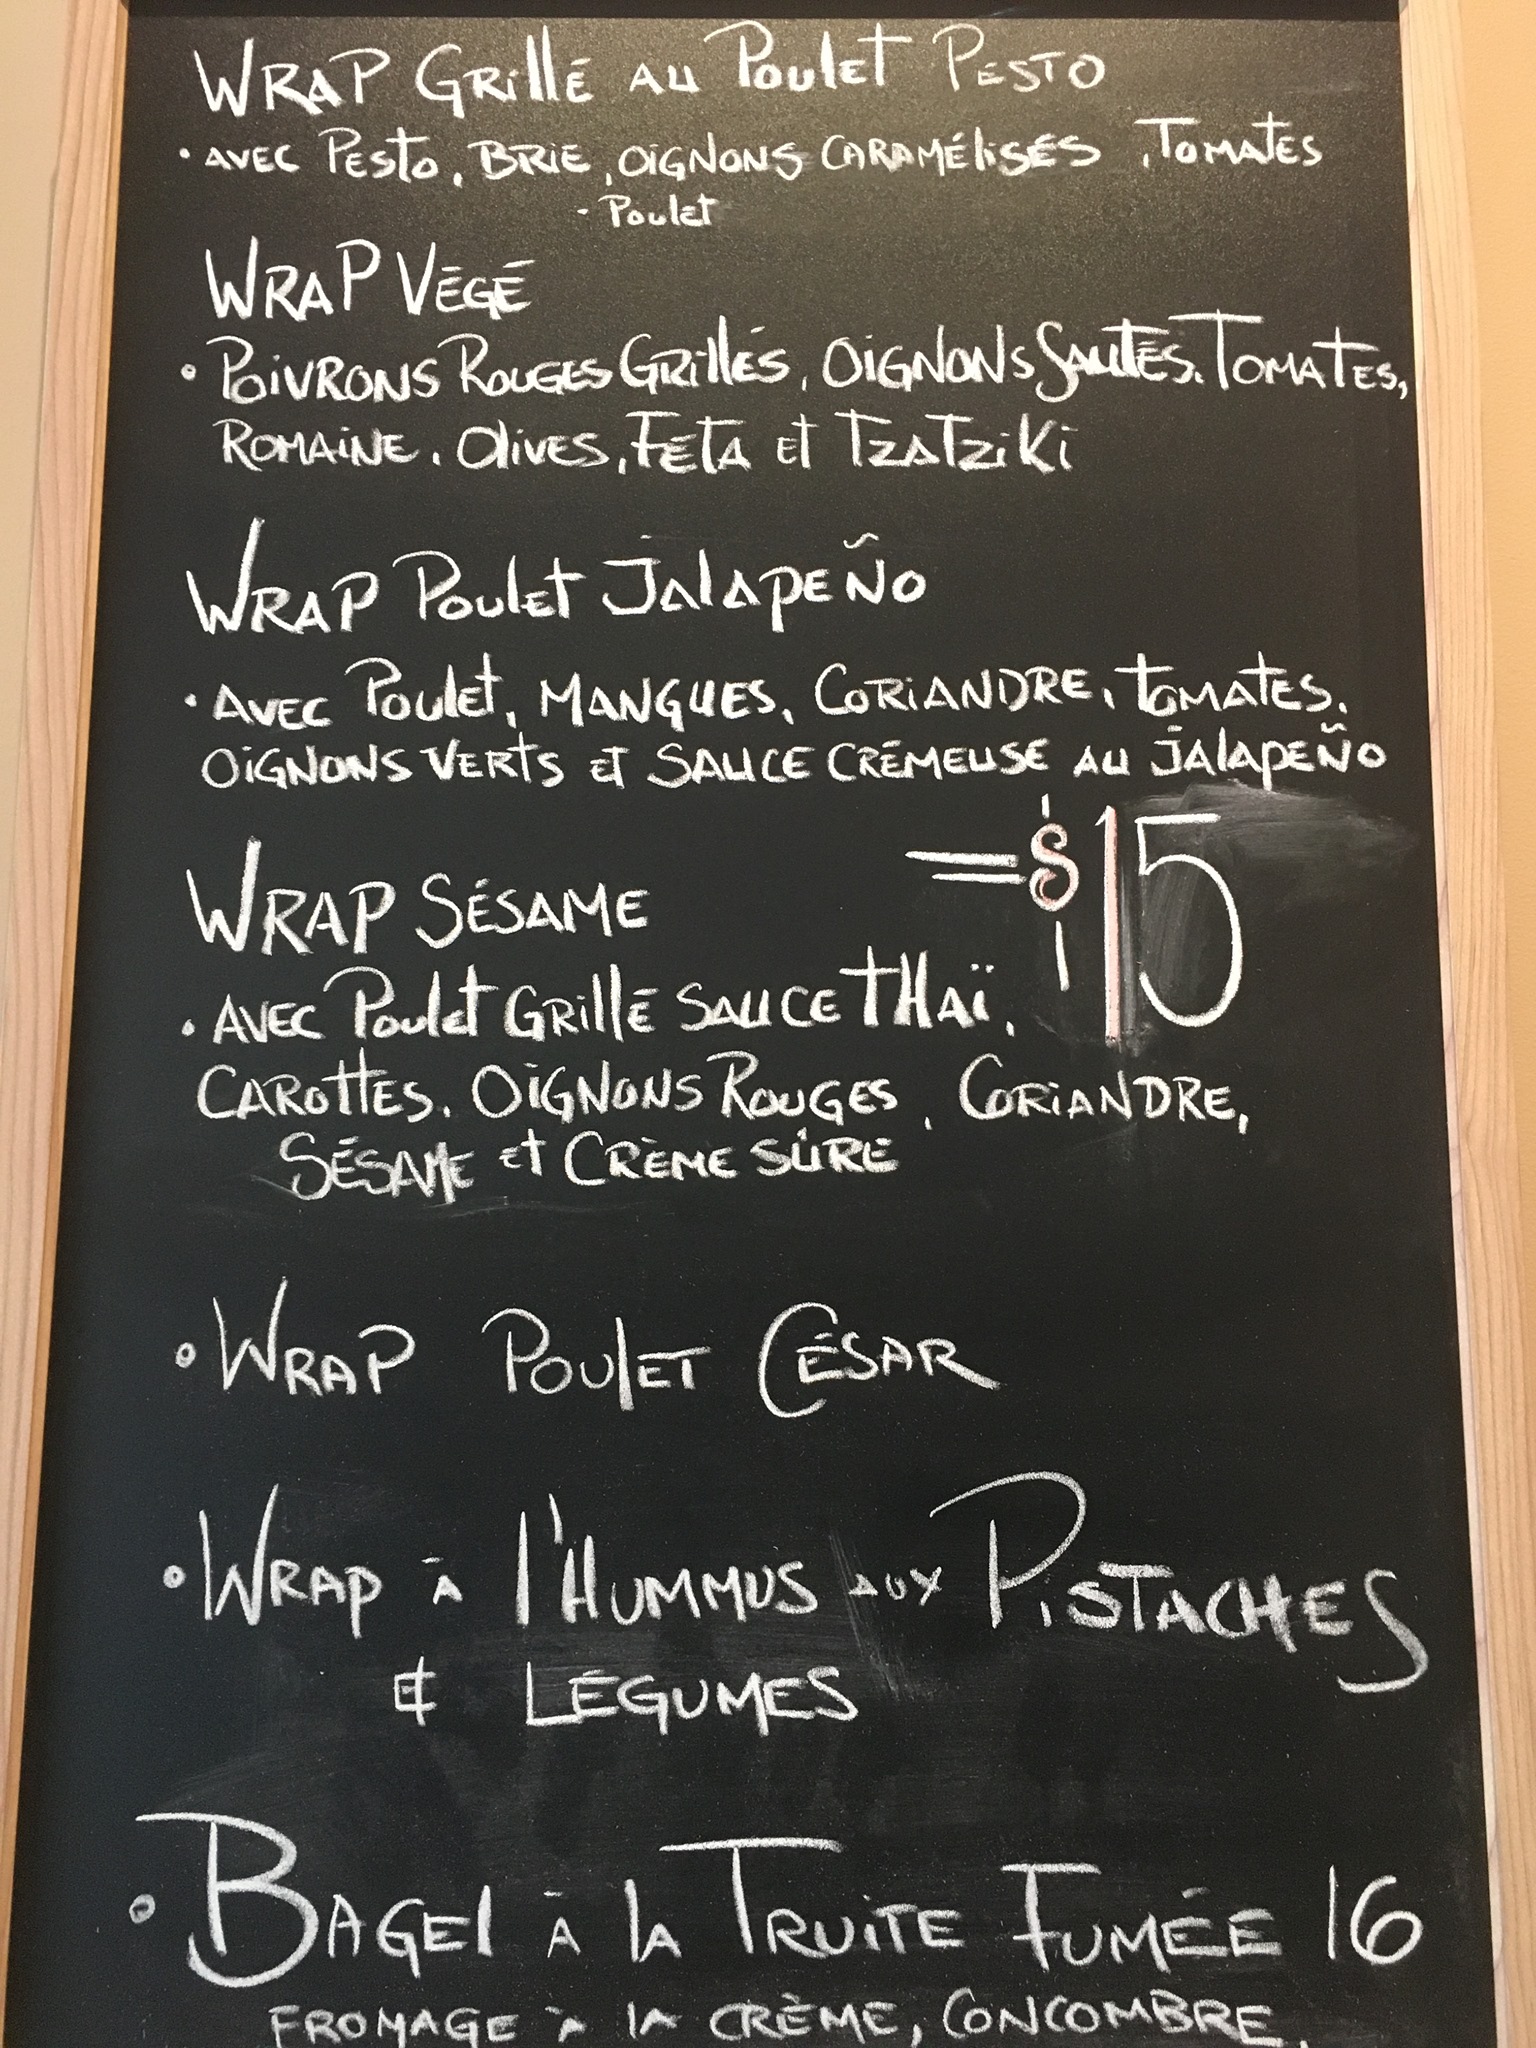 WRAP GRILLÉ AU POULET PESTO
• AVEC PESTO, BRIE, OIGNONS CARAMÉLISÉS, TOMATES
- POULET
WRAP VÉGÉ
• POIVRONS ROUGES GRILLÉS, OIGNONS SAUTÉS, TOMATES,
ROMAINE, OLIVES, FÉTA ET TZATZIKI
WRAP POULET JALAPEÑO
• AVEC POULET, MANGUES, CORIANDRE, TOMATES,
OIGNONS VERTS ET SAUCE CRÉMEUSE AU JALAPEÑO
= $15
WRAP SÉSAME
• AVEC POULET GRILLÉ SAUCE THAÏ,
CAROTTES, OIGNONS ROUGES, CORIANDRE,
SÉSAME ET CRÈME SÛRE
• WRAP POULET CÉSAR
• WRAP À L'HUMMUS AUX PISTACHES
ET LÉGUMES
• BAGEL À LA TRUITE FUMÉE 16
FROMAGE À LA CRÈME, CONCOMBRE,